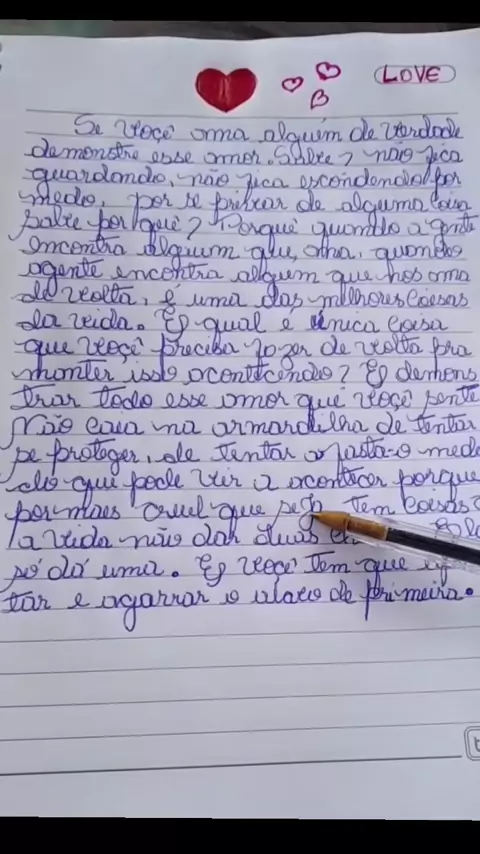 LOVE
Se você ama alguém de verdade
demonstre esse amor. Sabe? não fica
guardando, não fica escondendo por
medo, por se privar de alguma coisa
sabe por quê? Porquê quando a gente
encontra alguém que, ama, quando
agente encontra alguem que nos ama
de volta, é uma das melhores Coisas
da veida. Ej qual é única Coisa
que você precisa fazer de volta pra
manter isso acontecendo? Ej demons
trar todo esse amor que você sente
Não caia na armardilha de tentar
se proteger, de tentar afasta-o medo
do que pode vir a acontecer porque
por mais cruel que seja tem Coisas?
a vida não dar duas
só dá uma. Ej você tem que
tar e agarrar o alavo de primeira.